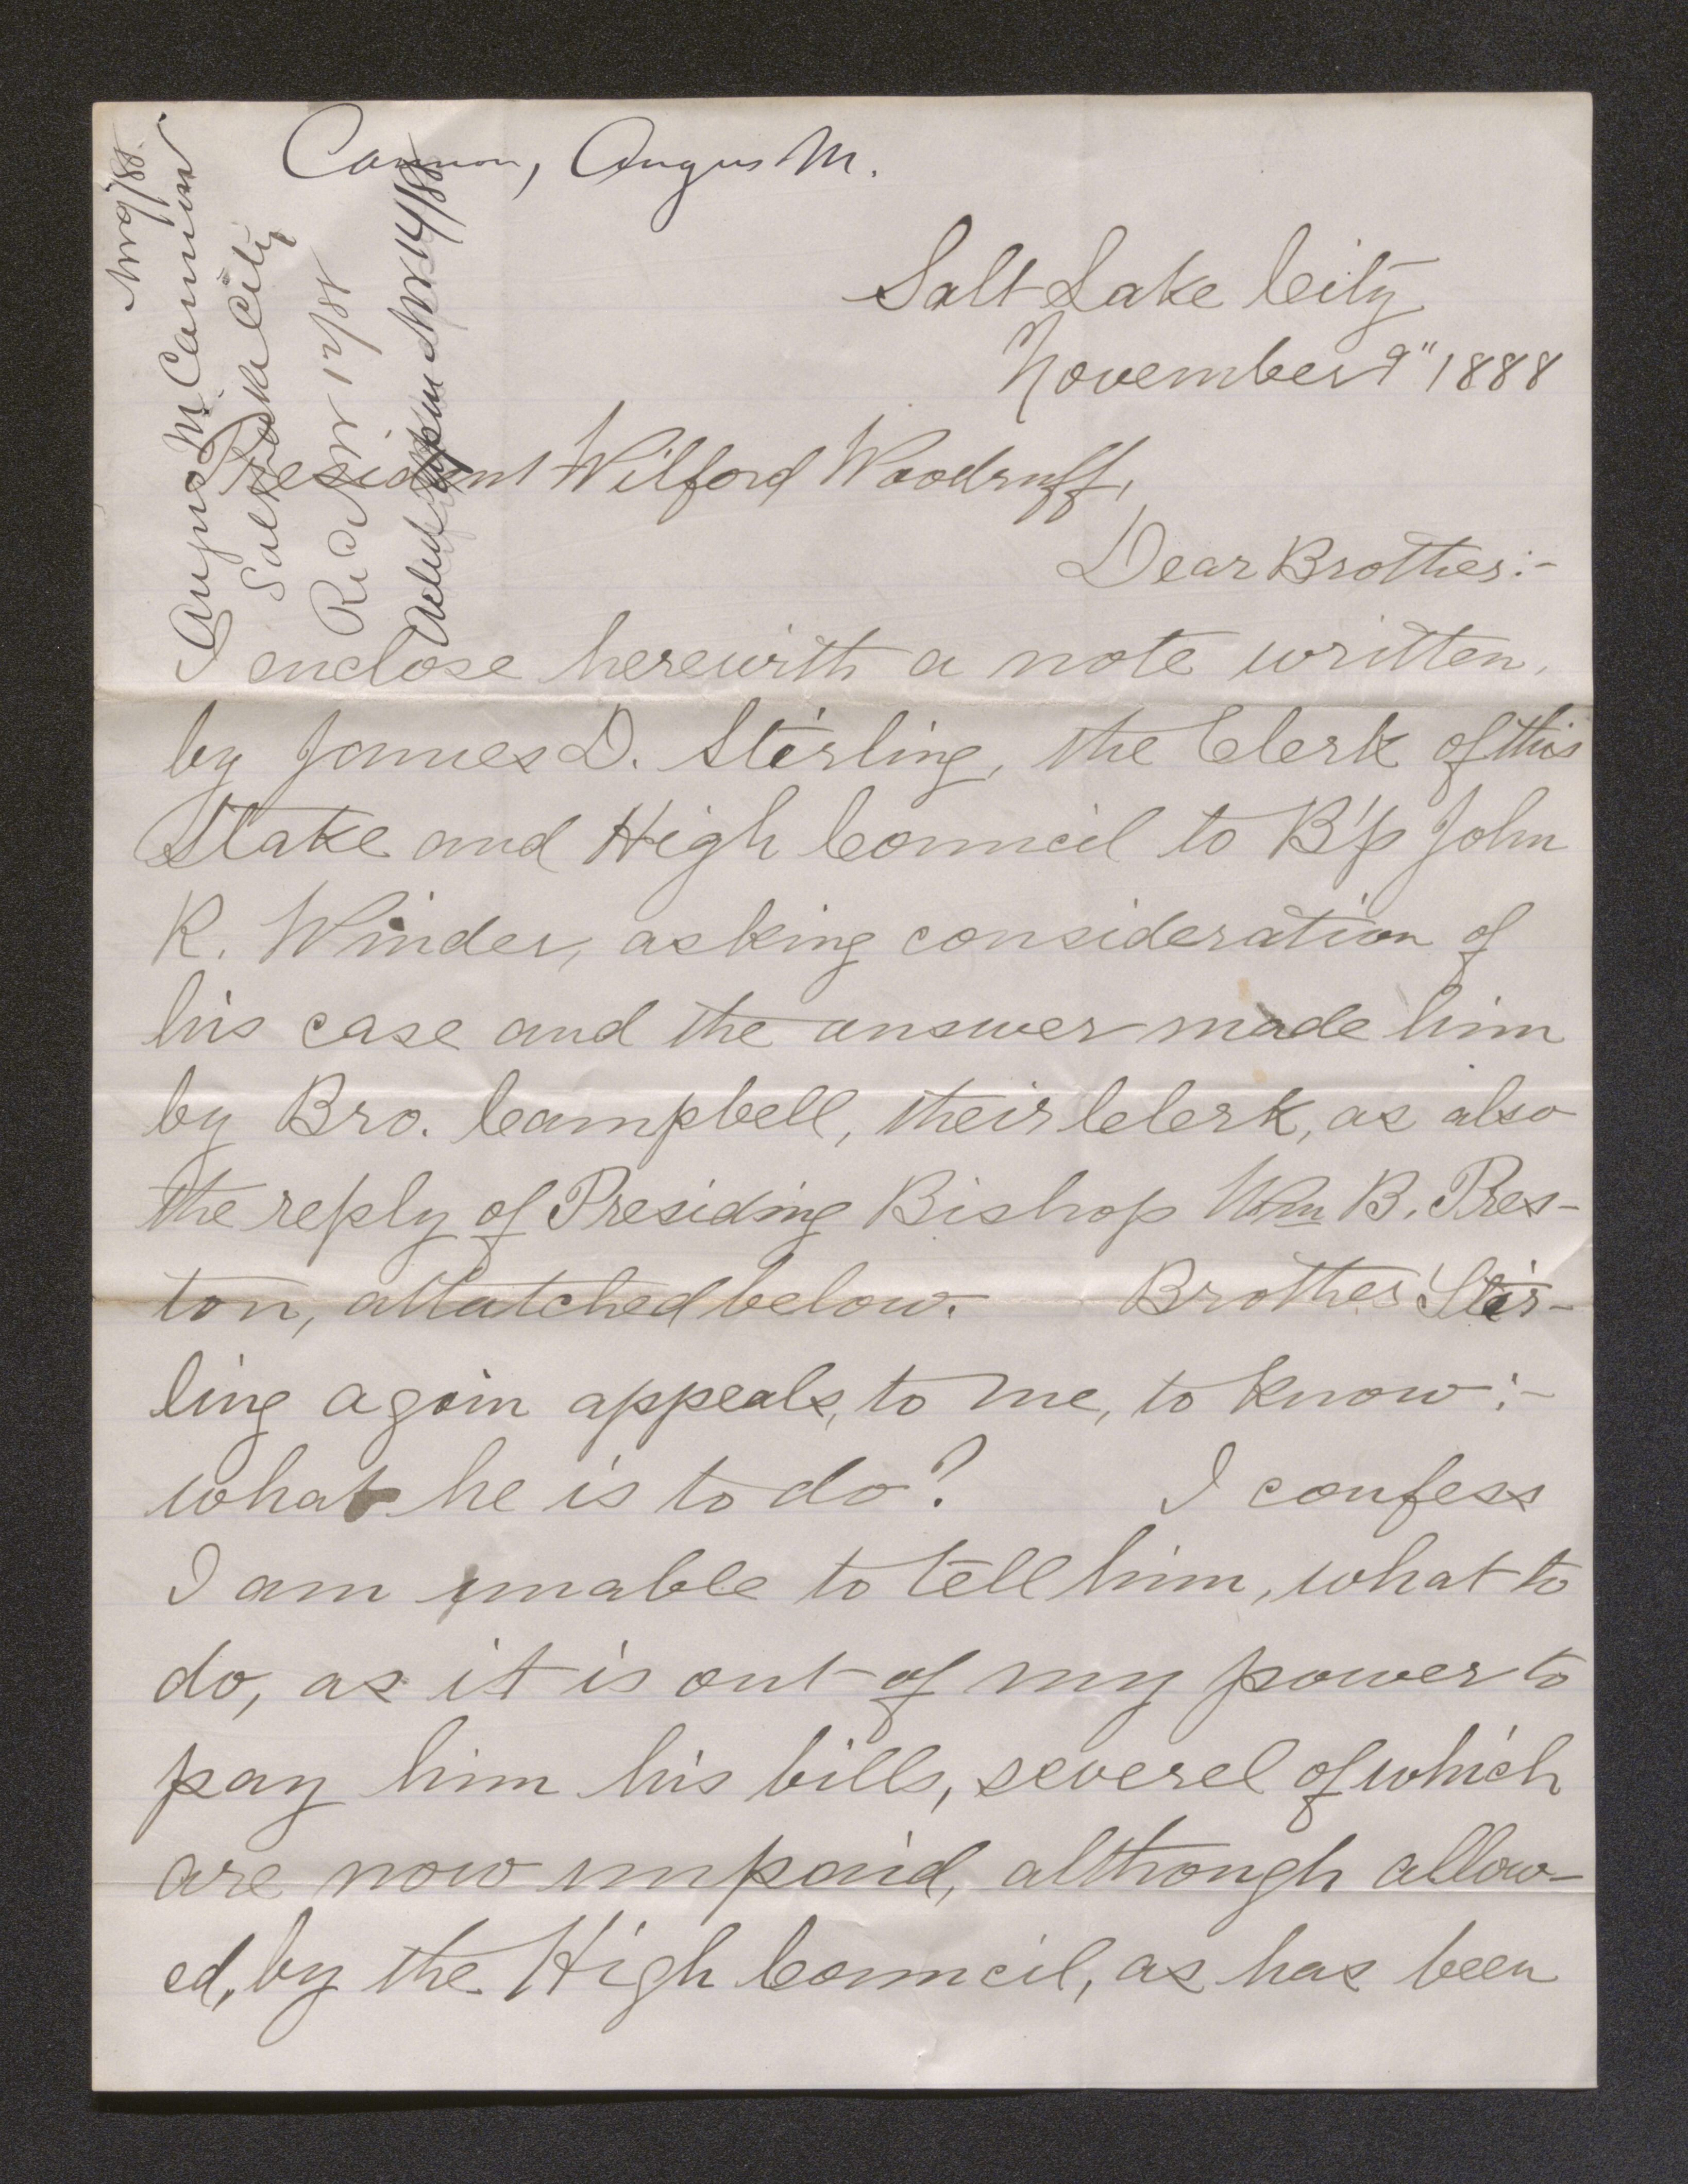 Cannon, Angus M.
Nov 9/88.
Angus M. Cannon
Salt Lake City
Rec Nov 12/88
Nov 14/88
Salt Lake City
November 9" 1888
President Wilford Woodruff,
Dear Brother:-
I enclose herewith a note written,
by James D. Stirling, the Clerk of this
Stake and High Council to B'p John
R. Winder, asking consideration of
his case and the answer made him
by Bro. Campbell, their Clerk, as also
the reply of Presiding Bishop Wm B. Pres-
ton, attatched below. Brother Stir-
ling again appeals, to me, to know:-
what he is to do? I confess
I am unable to tell him, what to
do, as it is out of my power to
pay him his bills, severel of which
are now unpaid, although allow-
ed, by the High Council, as has been